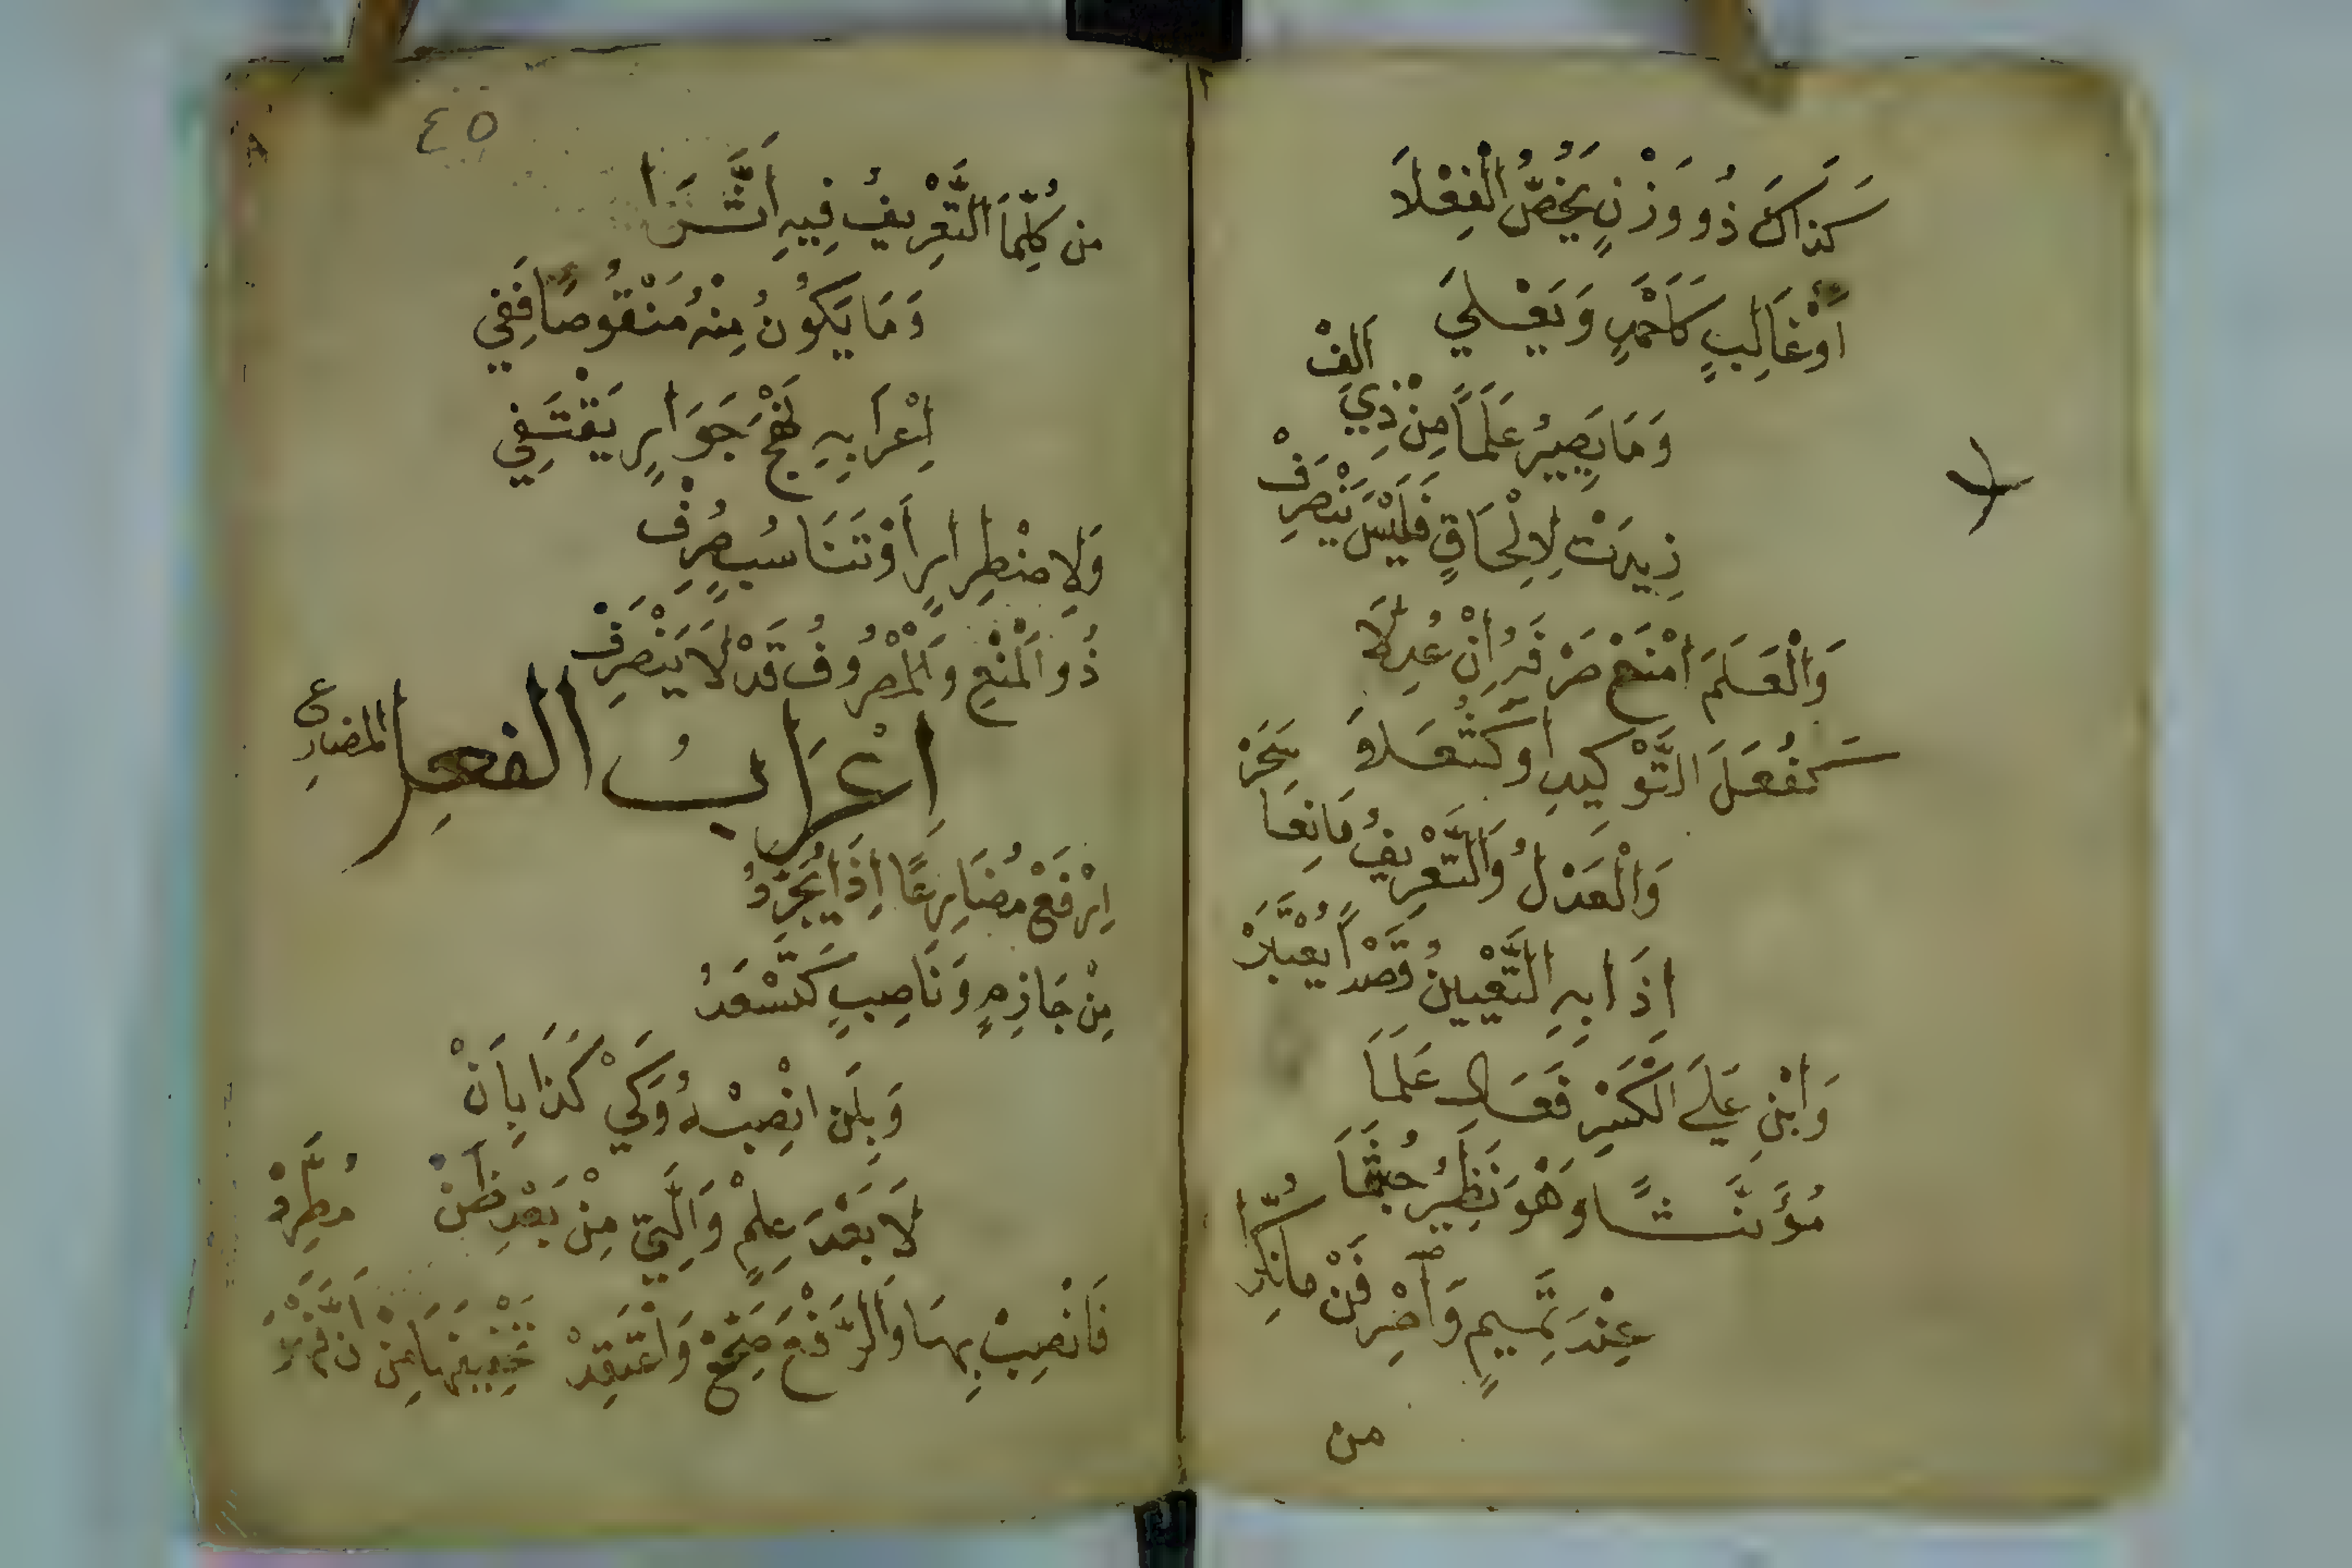 كَذَاكَ ذُو وَزْنٍ يَخُصُّ الْفِعْلَا
أَوْ غَالِبٍ كَأَحْمَدٍ وَيَعْلَى
وَمَا يَصِيرُ عَلَمًا مِنْ ذِي أَلِفْ
زِيدَتْ لِإِلْحَاقٍ فَلَيْسَ يَنْصَرِفْ
وَالْعَلَمَ امْنَعْ صَرْفَهُ إِنْ عُدِلَا
كَفُعَلَ التَّوْكِيدِ أَوْ كَثُعَلَا
وَالْعَدْلُ وَالتَّعْرِيفُ مَانِعَا سَحَرْ
إِذَا بِهِ التَّعْيِينُ قَصْدًا يُعْتَبَرْ
وَابْنِ عَلَى الْكَسْرِ فَعَالِ عَلَمَا
مُؤَنَّثًا وَهْوَ نَظِيرُ جُشَمَا
عِنْدَ تَمِيمٍ وَاصْرِفَنْ مَا نُكِّرَا
من
٤٥
من كُلِّ مَا التَّعْرِيفُ فِيهِ أَثَّرَا
وَمَا يَكُونُ مِنْهُ مَنْقُوصًا فَفِي
إِعْرَابِهِ نَهْجَ جَوَارٍ يَقْتَفِي
وَلِاضْطِرَارٍ أَوْ تَنَاسُبٍ صُرِفْ
ذُو الْمَنْعِ وَالْمَصْرُوفُ قَدْ لَا يَنْصَرِفْ
إِعْرَابُ الفعل المضارع
اِرْفَعْ مُضَارِعًا إِذَا يُجَرَّدُ
مِنْ جَازِمٍ وَنَاصِبٍ كَتَسْعَدُ
وَبِلَنِ انْصِبْهُ وَكَيْ كَذَا بِأَنْ
لَا بَعْدَ عِلْمٍ وَالَّتِي مِنْ بَعْدِ ظَنْ
فَانْصِبْ بِهَا وَالرَّفْعَ صَحِّحْ وَاعْتَقِدْ تَخْفِيفَهَا مِنْ أَنَّ فَهْوَ مُطَّرِدْ